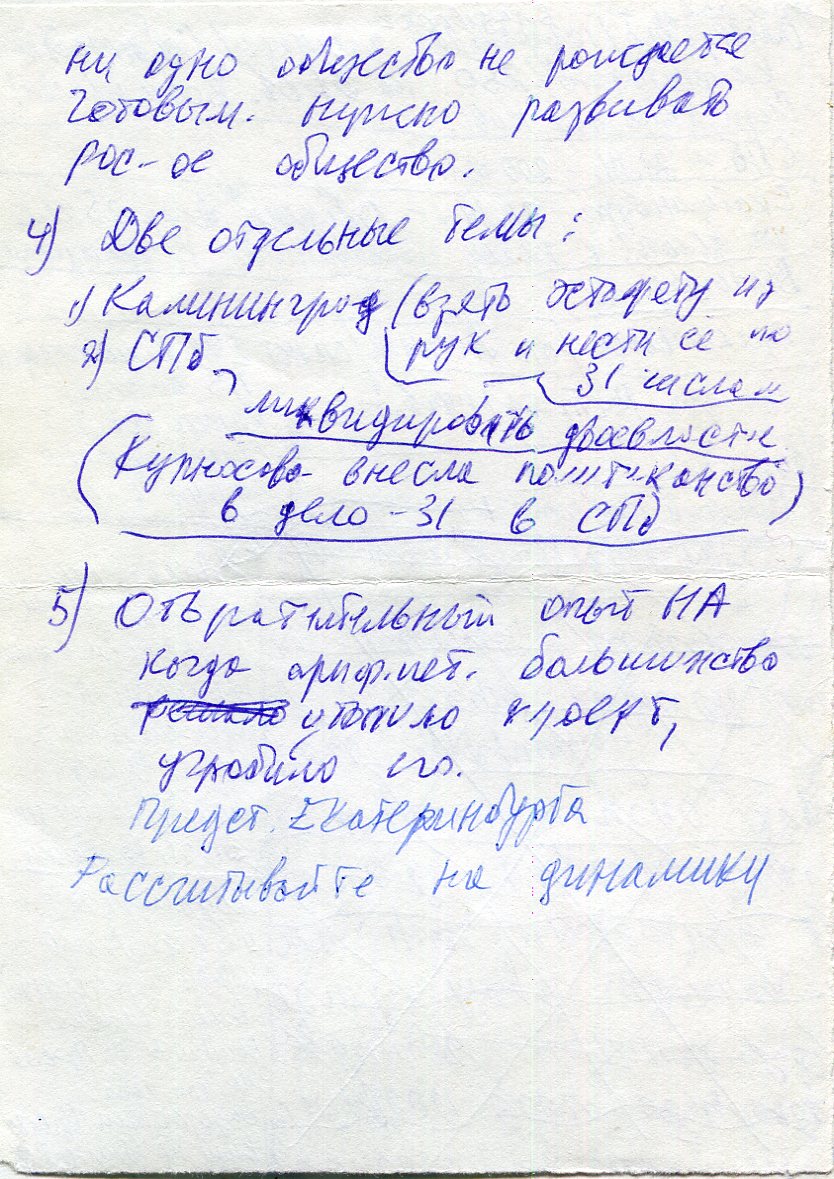 ни одно общество не рождается
готовым. Нужно развивать
рос-ое общество.
4) Две отдельные темы:
1) Калининград (взять эстафету из
рук и нести её по
2) СПб
31 числам
ликвидировать двоевластие
(Курносова внесла политиканство
в дело -31 в СПб)
5) Отвратительный опыт НА
когда арифмет. большинство
утопило проект,
угробило его.
Предст. Екатеринбурга
Рассчитывайте на динамику